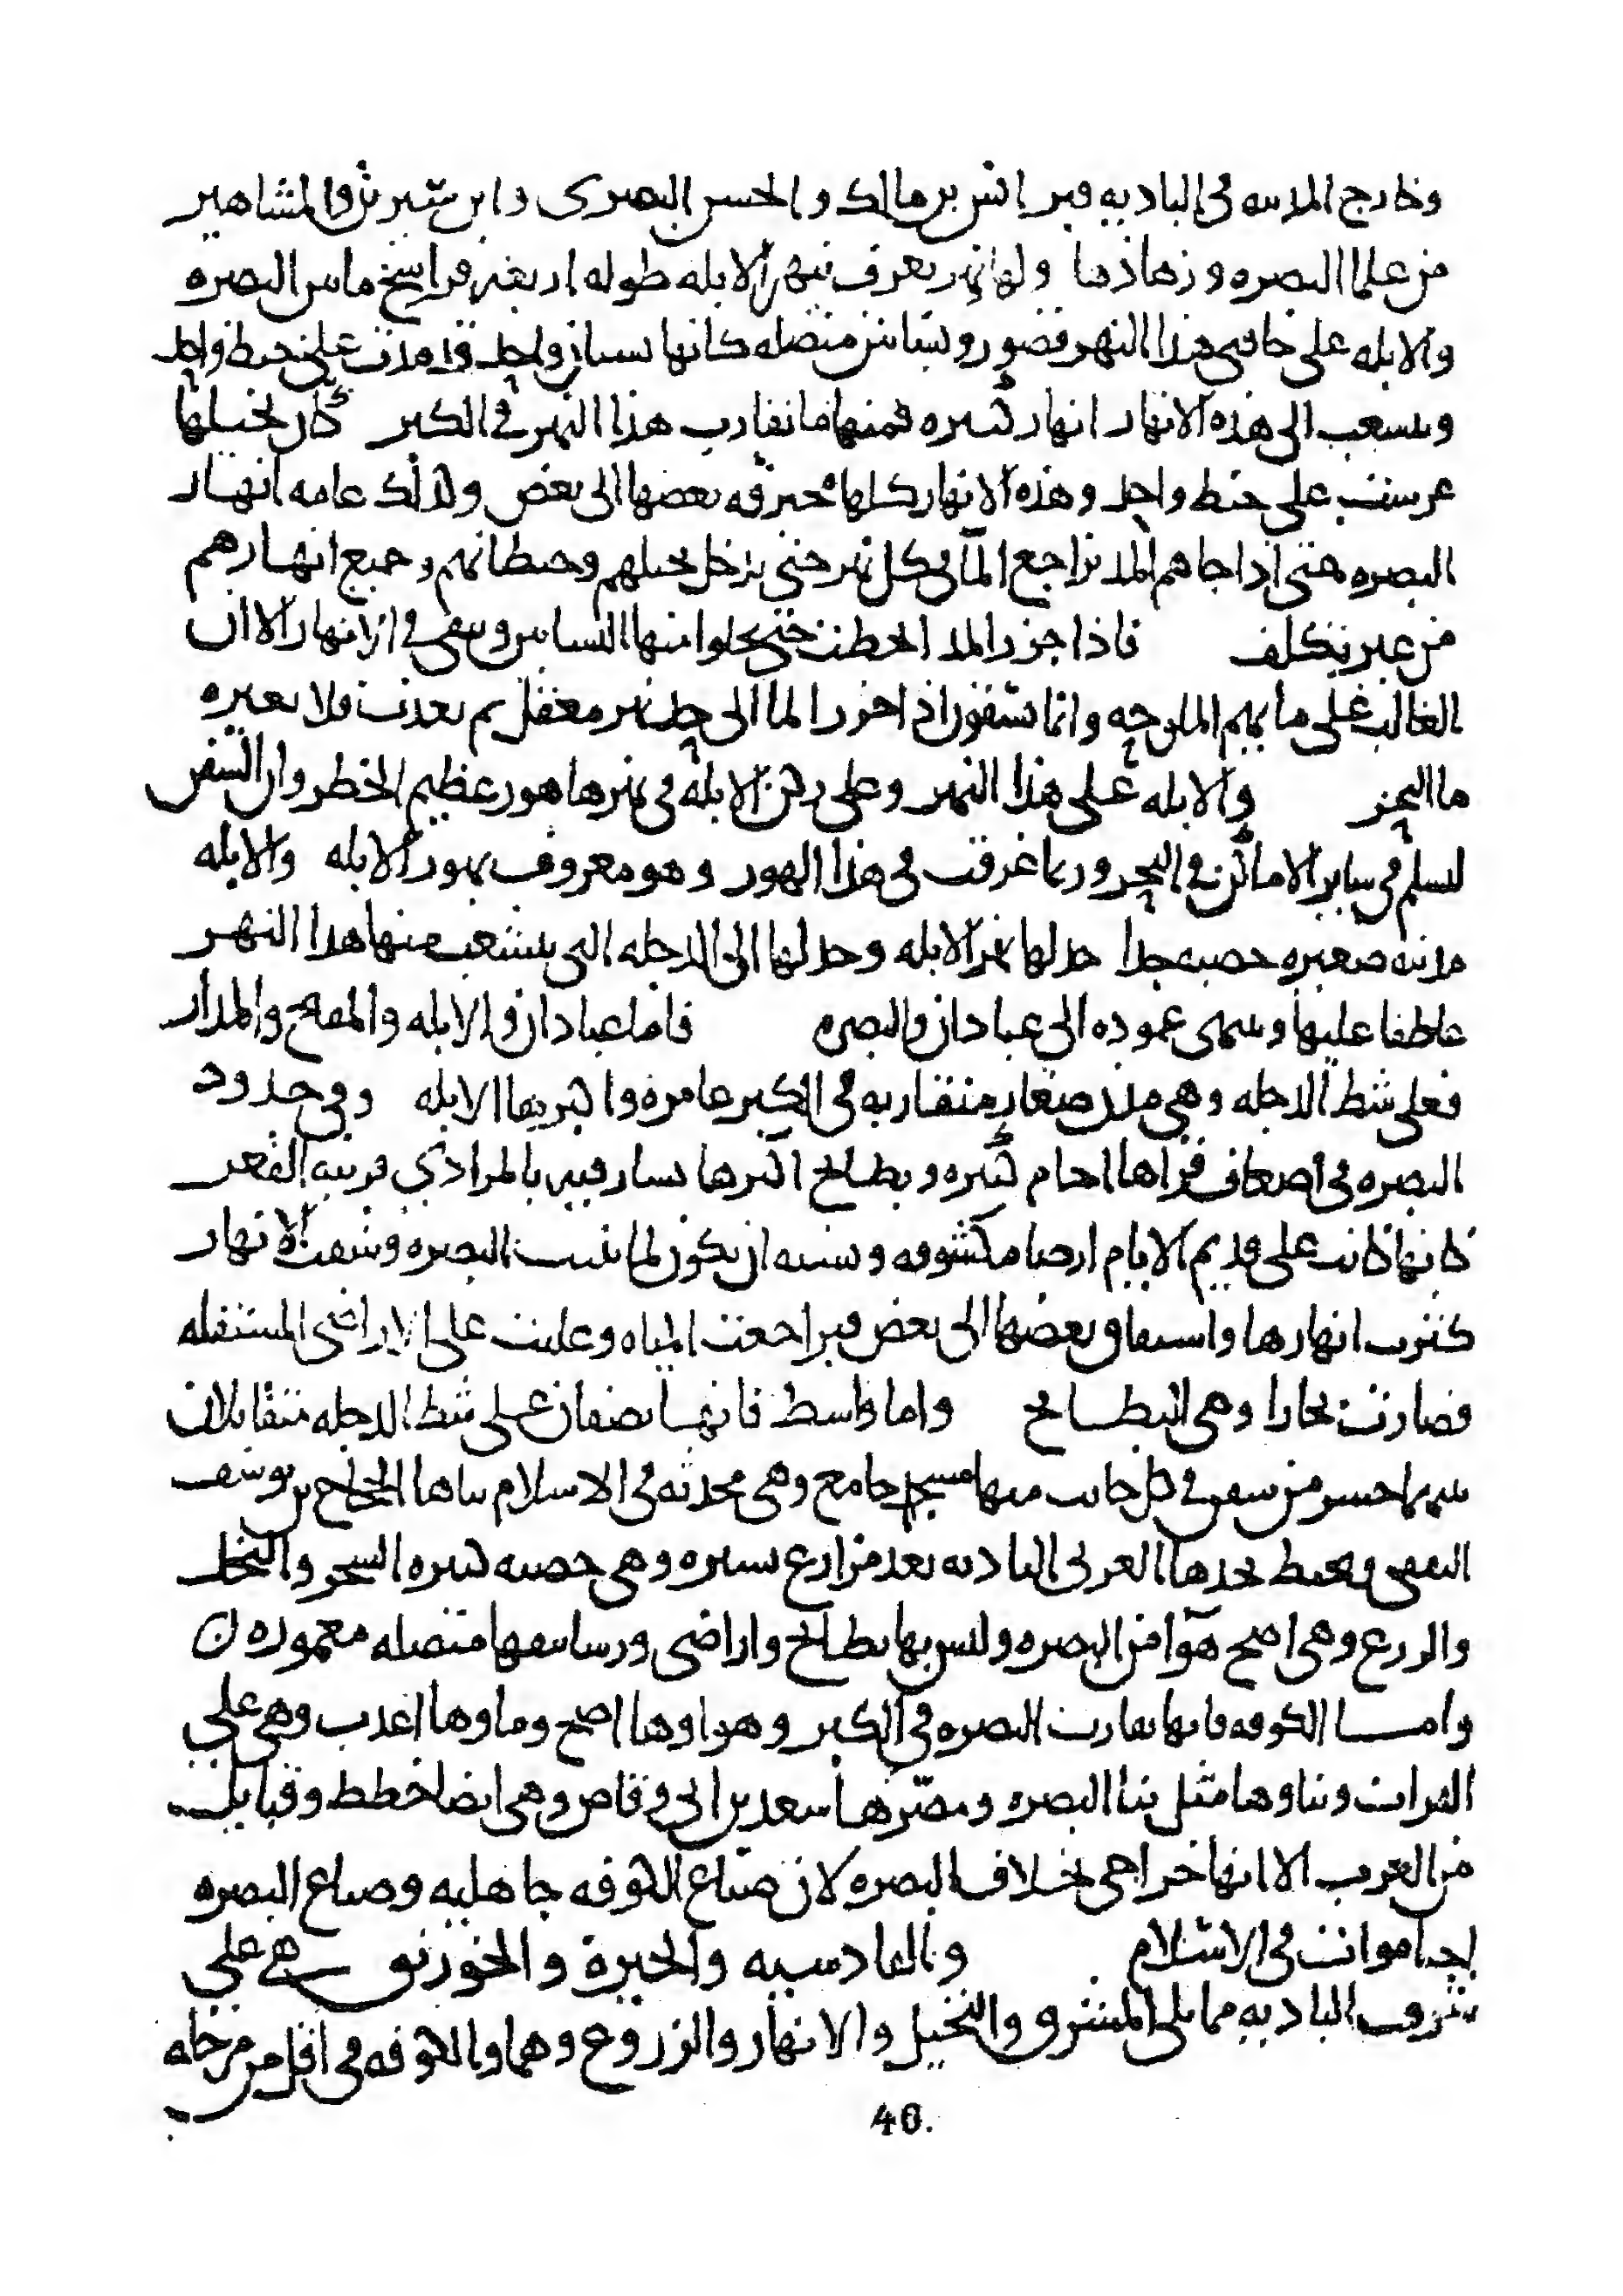 وخارج المدينه في الباديه قبر انس بن مالك والحسن البصرى وابن سيرين والمشاهير
من علما البصره وزهادها ولها نهر يعرف بنهر الابله طوله اربعه فراسخ ما بين البصره
والابله على حافتى هذا النهر قصور وبساتين متصله كانها بستان واحد قد مدت على خيط واحد
ويتشعب الى هذه الانهار انهار كثيره فمنها ما يقارب هذا النهر في الكبر كان نخيلها
غرست على خيط واحد وهذه الانهار كلها مخترقه بعضها الى بعض ولذلك عامه انهار
البصره حتى اذا جاهم المد تراجع المآ في كل نهر حتى يدخل نخيلهم وحيطانهم وجميع انهارهم
من غير تكلف فاذا جزر المد انحطت حتى تخلوا منها البساتين وتبقى في الانهار الا ان
الغالب على مايهم الملوحه وانما يستقون اذا جزر الما الى حد نهر معقل ثم يعذب فلا يغيره
ما البحر والابله على هذا النهر وعلى ركن الابله في نهرها هور عظيم الخطر وان السفن
لتسلم في ساير الاماكن في البحر وربما غرقت في هذا الهور وهو معروف بهور الابله والابله
مدينه صغيره خصبه جدا حد لها نهر الابله وحد لها الى الدجله التى يتشعب منها هذا النهر
عاطفا عليها وينتهى عموده الى عبادان والبصره فاما عبادان والابله والمفتح والمذار
فعلى شط الدجله وهي مدن صغار متقاربه في الكبر عامره واكبرها الابله وفي حدود
البصره في اضعاف قراها اجام كثيره وبطايح اكثرها يسار فيه بالمرادي قريبه القعر
كانها كانت على قديم الايام ارضا مكشوفه ويشبه ان يكون لما بنيت البصره وشقت الانهار
كثرت انهارها واستغلق بعضها الى بعض فتراجعت المياه وغلبت على الاراضى المستفله
فصارت بحارا وهى البطايح واما واسط فانها نصفان على شط الدجله متقابلان
بينهما جسر من سفن في كل جانب منهما مسجد جامع وهى محدثه في الاسلام بناها الحجاج بن يوسف
الثقفى ويحيط بحدها الغربى الباديه بعد مزارع يسيره وهى خصبه كثيره الشجر والنخل
والزرع وهى اصح هوآ من البصره وليس بها بطايح واراضى ورساتيقها متصله معموره ن
وامــا الكوفه فانها تقارب البصره في الكبر وهواوها اصح وماوها اعذب وهى على
الفرات وبناوها مثل بنا البصره ومصّرها سعد بن ابى وقاص وهى ايضا خطط وقبايل
من العرب الا انها خراجى بخلاف البصره لان ضياع الكوفه جاهليه وضياع البصره
احيا موات في الاسلام والقادسيه والحيرة والخورنق هي على
شرف الباديه مما يلى المشرق والنخيل والانهار والزروع وهما والكوفه في اقل من مرحله
40.